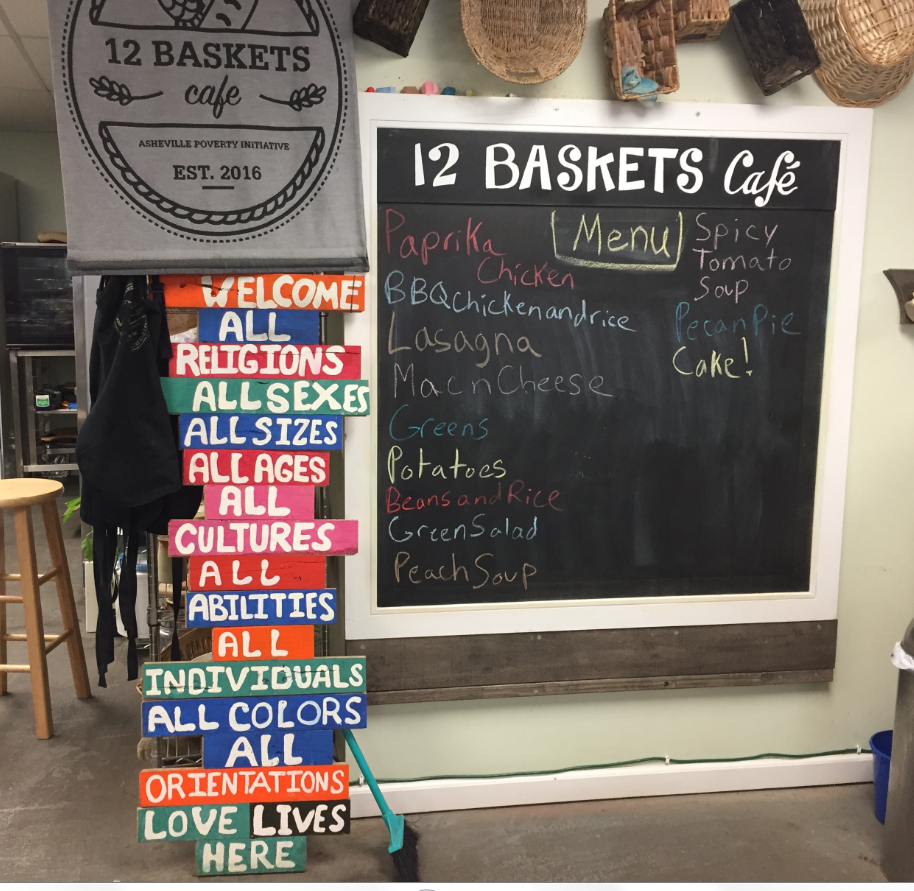 12 BASKETS
cafe
ASHEVILLE POVERTY INITIATIVE
EST. 2016
WELCOME
ALL
RELIGIONS
ALL SEXES
ALL SIZES
ALL AGES
ALL
CULTURES
ALL
ABILITIES
ALL
INDIVIDUALS
ALL COLORS
ALL
ORIENTATIONS
LOVE LIVES
HERE
12 BASKETS Café
Menu
Paprika
Chicken
BBQ chicken and rice
Lasagna
Mac n Cheese
Greens
Potatoes
Beans and Rice
Green Salad
Peach Soup
Spicy
Tomato
Soup
Pecan Pie
Cake!